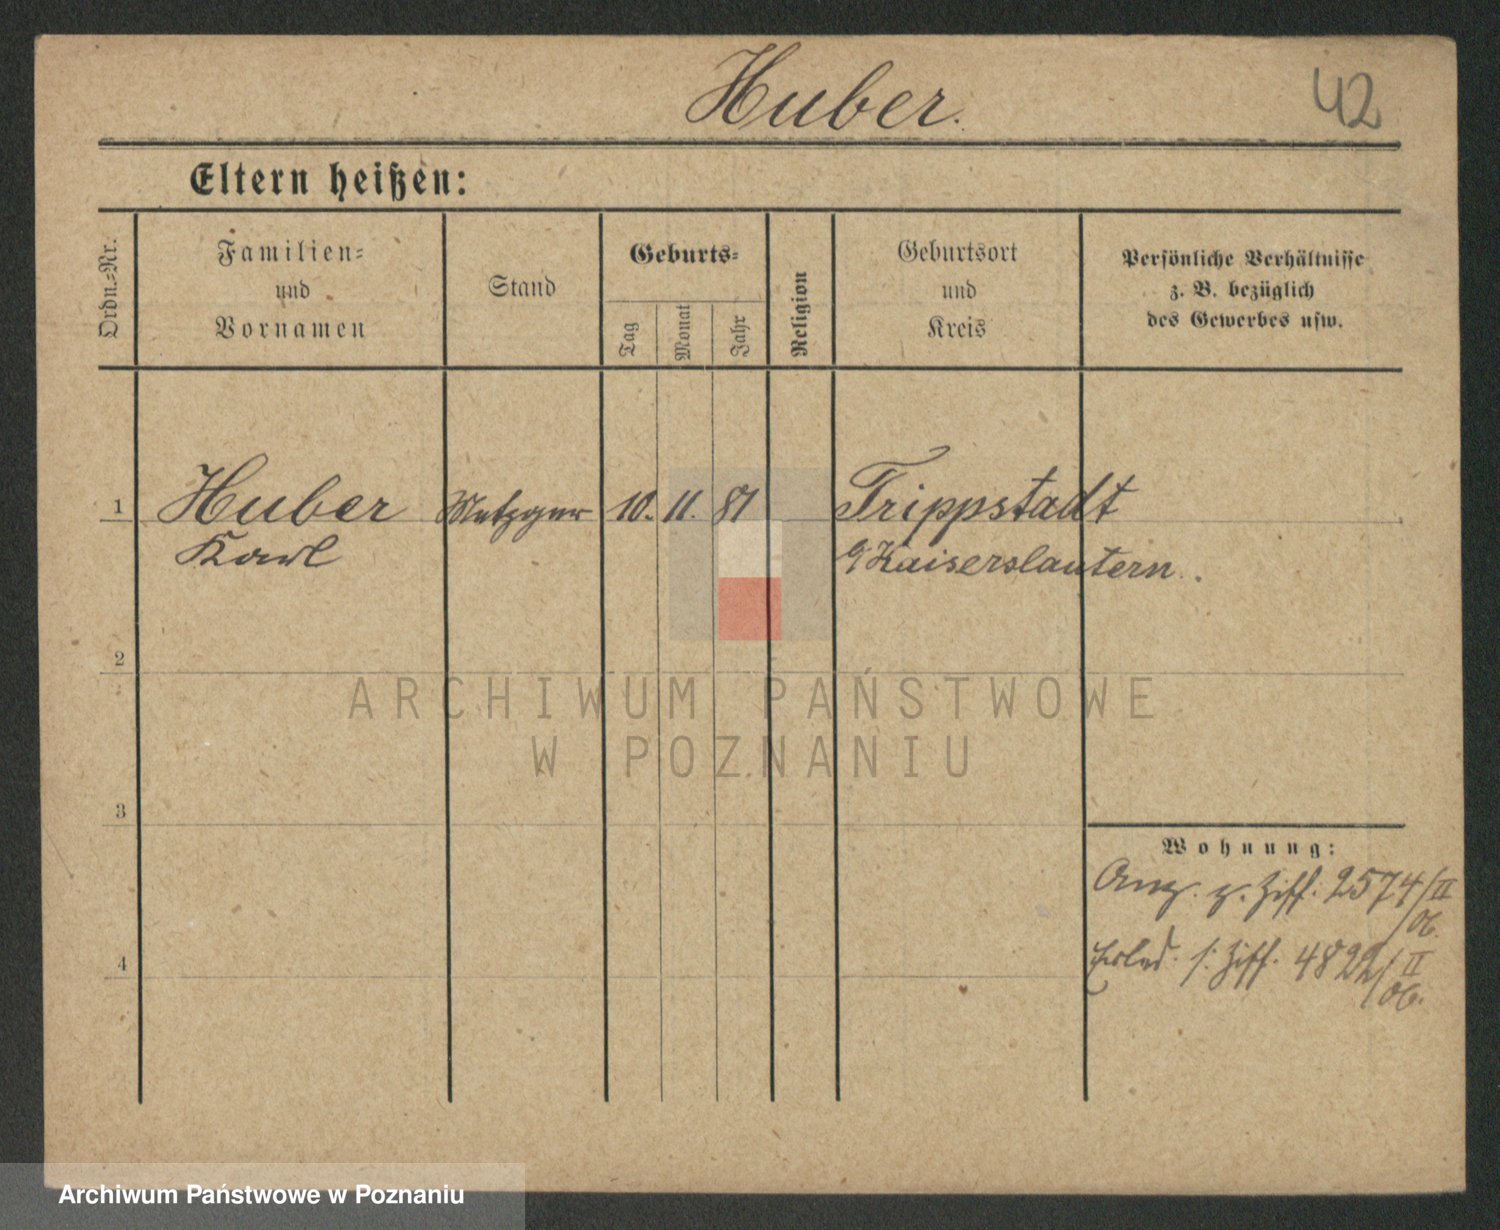 Huber.
42
Eltern heißen:
Ordn.-Nr.
Familien-
und
Vornamen
Stand
Geburts-
Tag
Monat
Jahr
Religion
Geburtsort
und
Kreis
Persönliche Verhältnisse
z. B. bezüglich
des Gewerbes usw.
1 Huber Metzger 10. 11. 81 Trippstadt
Karl Kaiserslautern.
2
ARCHIWUM PAŃSTWOWE
W POZNANIU
3
Wohnung:
Anz. z. Ziff. 2574/II
/06.
4
Erled. s. Ziff. 4822/II
/06.
Archiwum Państwowe w Poznaniu